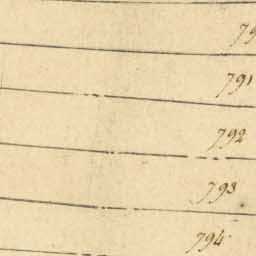 791
792
793
794